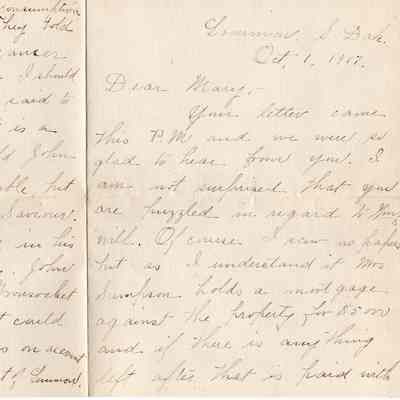 consumption
They told
cancer
I should
said to
t is a
ld John
able hit
Saviour.
e in his
. John
Woonsocket
t could
s on account
t of Lemmon.
Lemmon, S. Dak.
Oct. 1, 1917.
Dear Mary,-
Your letter came
this P.M. and we were so
glad to hear from you. I
am not surprised that you
are puzzled in regard to
will. Of course I saw no papers
but as I understand it Mrs
Simpson holds a mortgage
against the property for
and if there is anything
left after that is paid with